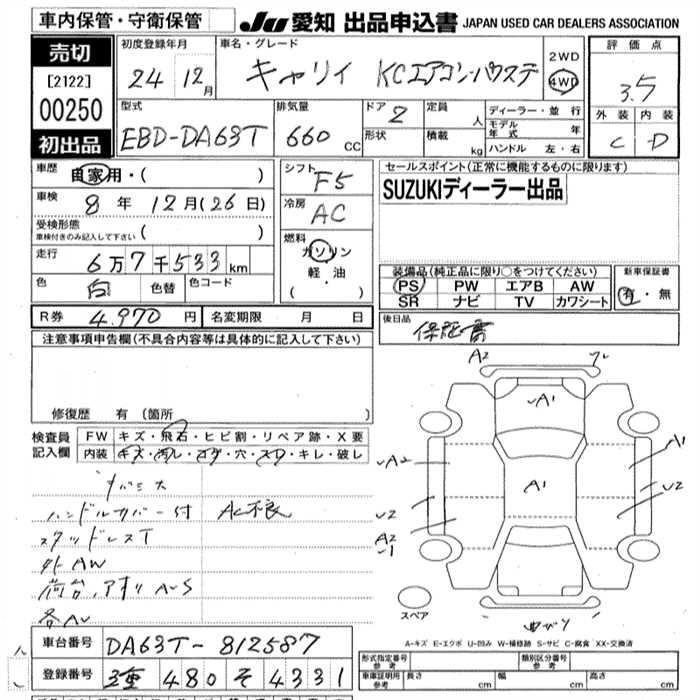 車内保管・守衛保管
JU 愛知 出品申込書 JAPAN USED CAR DEALERS ASSOCIATION
売切
[2122]
00250
初出品
初度登録年月 24 12月
車名・グレード キャリイ KCエアコン・パワステ
2WD
4WD
評価点 3.5
外装 内装
C D
型式 EBD-DA63T
排気量 660 CC
ドア 2
形状
定員 人
積載 kg
ディーラー・並行
モデル年式 年
ハンドル 左・右
車歴 自家用・( )
車検 8年 12月(26日)
受検形態
車検付きのみ記入して下さい ( )
走行 6万7千533km
色 白 色替 色コード
シフト F5
冷房 AC
燃料
ガソリン
軽・油
( ・ )
セールスポイント(正常に機能するものに限ります)
SUZUKIディーラー出品
装備品(純正品に限り○をつけてください)
PS PW エアB AW
SR ナビ TV カワシート
新車保証書
有・無
R券 4,970円 名変期限 月 日
後日品 保証書
注意事項申告欄(不具合内容等は具体的に記入して下さい)
修復歴 有 (箇所 )
検査員
記入欄
FW キズ・飛石・ヒビ割・リペア跡・X要
内装 キズ・汚レ・コゲ・穴・スレ・キレ・破レ
ハンドルカバー付 AC不良
スタッドレスT
外AW
荷台、アオリ A・S
A2
A1
A1
A1
A2
U2
U2
A2
スペア
曲がり
A-キズ E-エクボ U-凹み W-補修跡 S-サビ C-腐食 XX-交換済
車台番号 DA63T-812587
登録番号 480 そ 4331
形式指定番号
参考
類別区分番号
参考
車庫証明用
参考
長さ cm 幅 cm 高さ cm